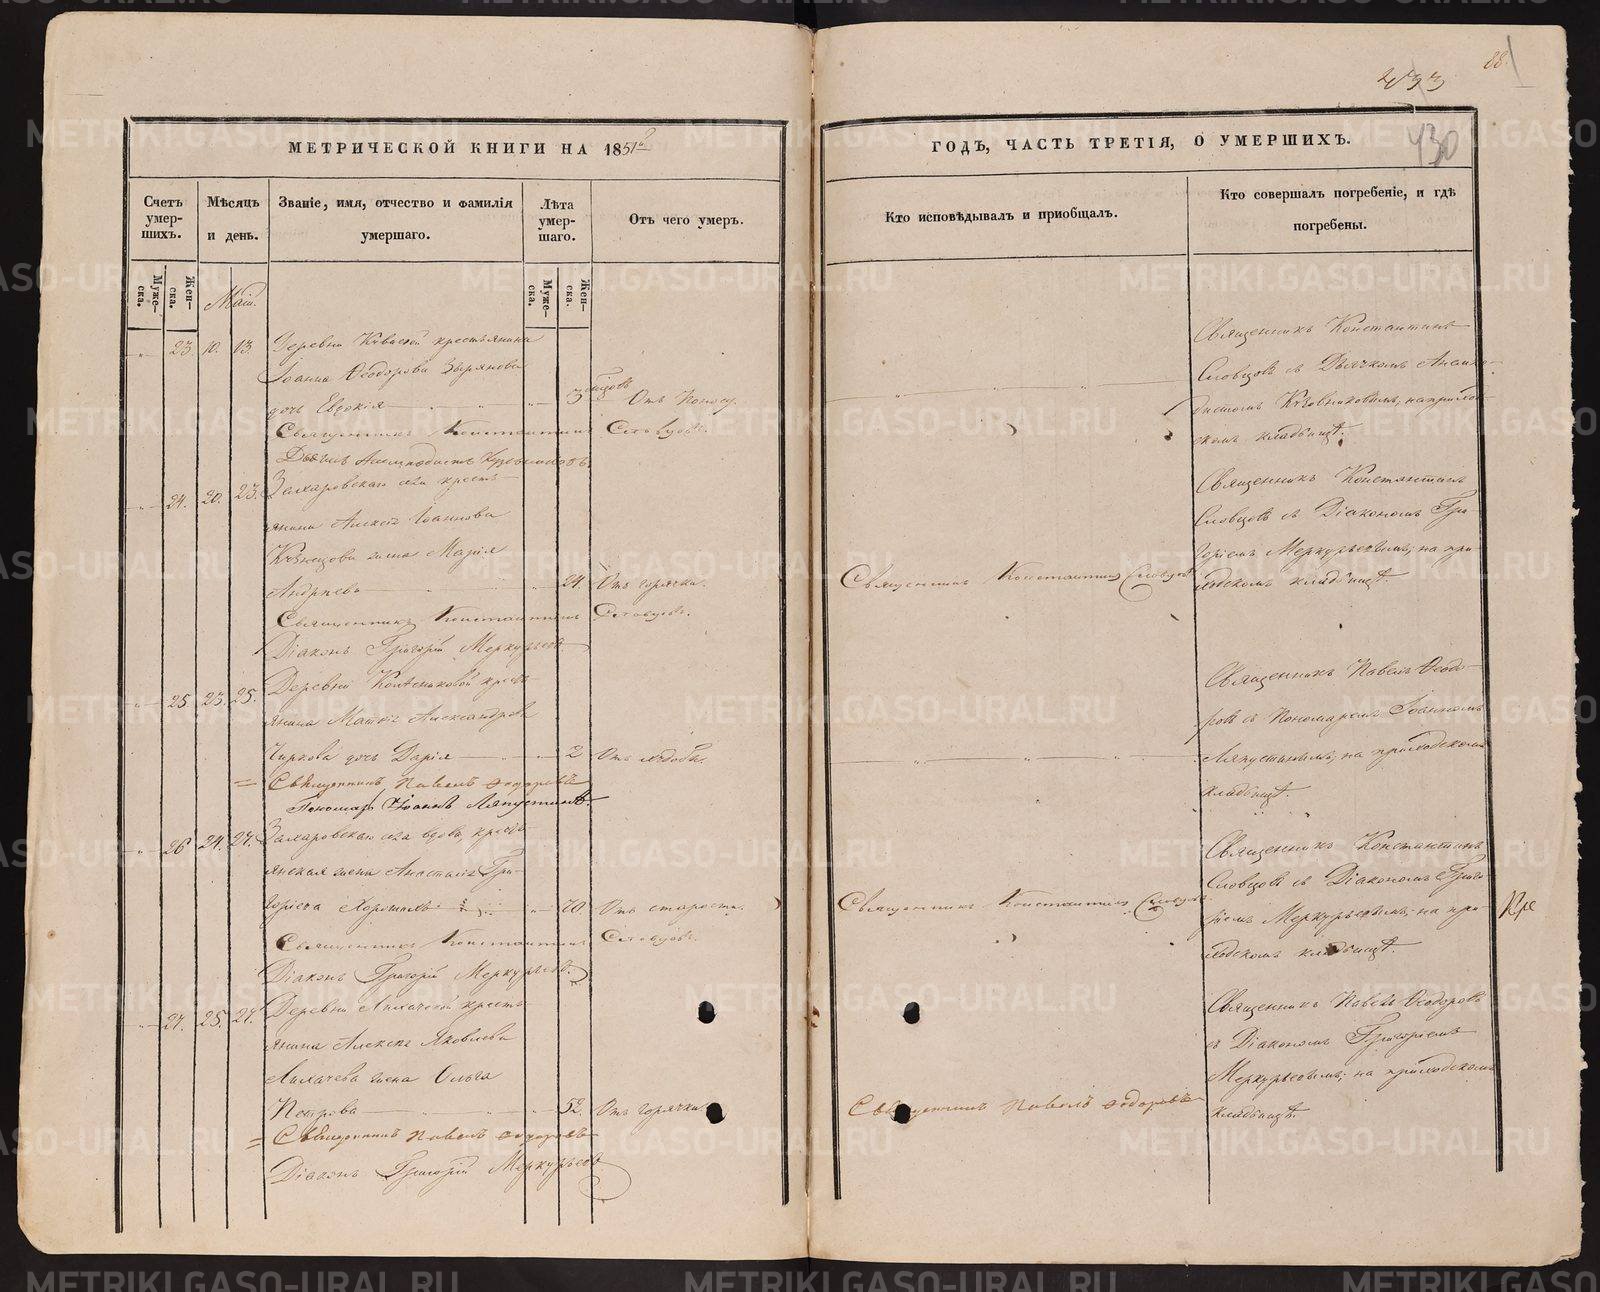 88.
433
430
МЕТРИЧЕСКОЙ КНИГИ НА 1851й
Счетъ умер-шихъ.
Мѣсяцъ и день.
Званіе, имя, отчество и фамилія умершаго.
Лѣта умер-шаго.
Отъ чего умеръ.
Муже-ска.
Жен-ска.
Май.
Муже-ска.
Жен-ска.
23. 10. 13. Деревни крестьянина
Іоанна Ѳеодорова Зырянова
дочь Евдокія 3 Отъ поносу.
Священникъ Константинъ Словцовъ.
24. 20. 23. Захаровскаго села кресть-
янина Алексія Іоаннова
Кузнецова жена Марія
Андреева 24. Отъ горячки.
Священникъ Константинъ Словцовъ.
Діаконъ Григорій Меркурьевъ
25. 23. 25. Деревни кресть-
янина Матвія Александрова
Чиркова дочь Дарія 2
Священникъ Павелъ Ѳеодоровъ
Пономарь Іоаннъ Ляпустинъ
26 24. 27. Захаровскаго села вдова, кресть-
янская жена Анастасія Гри-
горьева 70 Отъ старости.
Священникъ Константинъ Словцовъ.
Діаконъ Григорій Меркурьевъ.
27. 25. 27. Деревни Лихачевой кресть-
янина Алексія Яковлева
Лихачева жена Ольга
Петрова 52. Отъ горячки.
Священникъ Павелъ Ѳеодоровъ
Діаконъ Григорій Меркурьевъ
ГОДЪ, ЧАСТЬ ТРЕТІЯ, О УМЕРШИХЪ.
Кто исповѣдывалъ и пріобщалъ.
Кто совершалъ погребеніе, и гдѣ погребены.
Священникъ Константинъ
Словцовъ съ Дьячкомъ
на приход-
скомъ кладбищѣ.
Священникъ Константинъ
Словцовъ съ Діакономъ Гри-
горіемъ Меркурьевымъ, на при-
Священникъ Константинъ Словцовъ
ходскомъ кладбищѣ
Священникъ Павелъ Ѳеодо-
ровъ съ Пономаремъ Іоанномъ
Ляпустинымъ, на приходскомъ
кладбищѣ.
Священникъ Константинъ
Словцовъ съ Діакономъ Григо-
Священникъ Константинъ Словцовъ
ріемъ Меркурьевымъ, на при-
ходскомъ кладбищѣ.
Священникъ Павелъ Ѳеодоровъ
съ Діакономъ Григоріемъ
Меркурьевымъ, на приходскомъ
Священникъ Павелъ Ѳеодоровъ
кладбищѣ.
METRIKI.GASO-URAL.RU